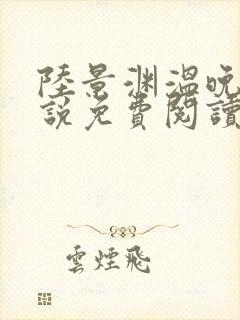 陸景渊溫晚
說免費閱讀
雲煙飛